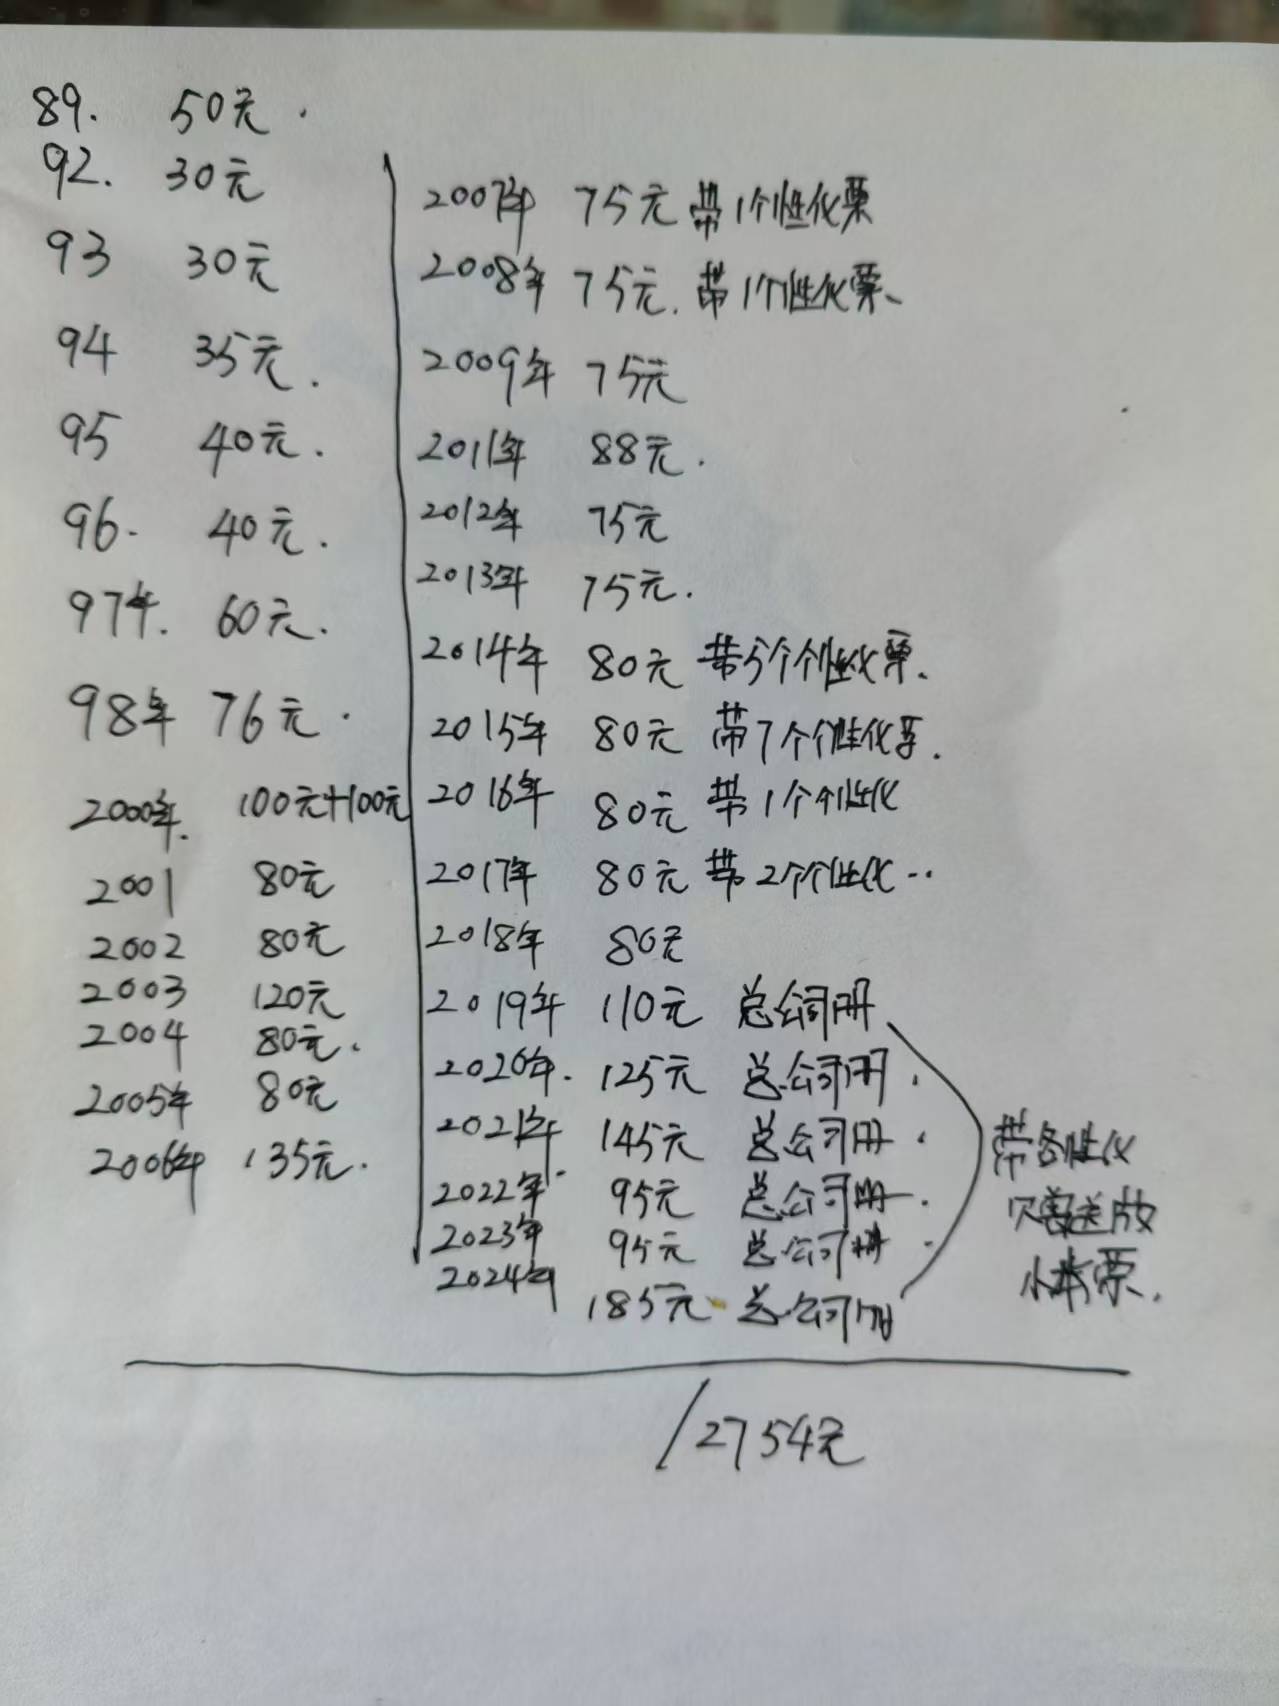 89. 50元.
92. 30元
93 30元
94 35元.
95 40元.
96. 40元.
97年. 60元.
98年 76元.
2000年. 100元+100元
2001 80元
2002 80元
2003 120元
2004 80元.
2005年 80元
2006年 135元.
2007年 75元 带1个性化票
2008年 75元. 带1个性化票、
2009年 75元
2011年 88元.
2012年 75元
2013年 75元.
2014年 80元 带5个个性化票、
2015年 80元 带7个个性化票.
2016年 80元 带1个个性化
2017年 80元 带2个个性化..
2018年 80元
2019年 110元 总公司册
2020年. 125元 总公司册.
2021年. 145元 总公司册.
2022年 95元 总公司册.
2023年 95元 总公司册.
2024年 185元 总公司册
带各性化
赠送放
小本票.
2754元